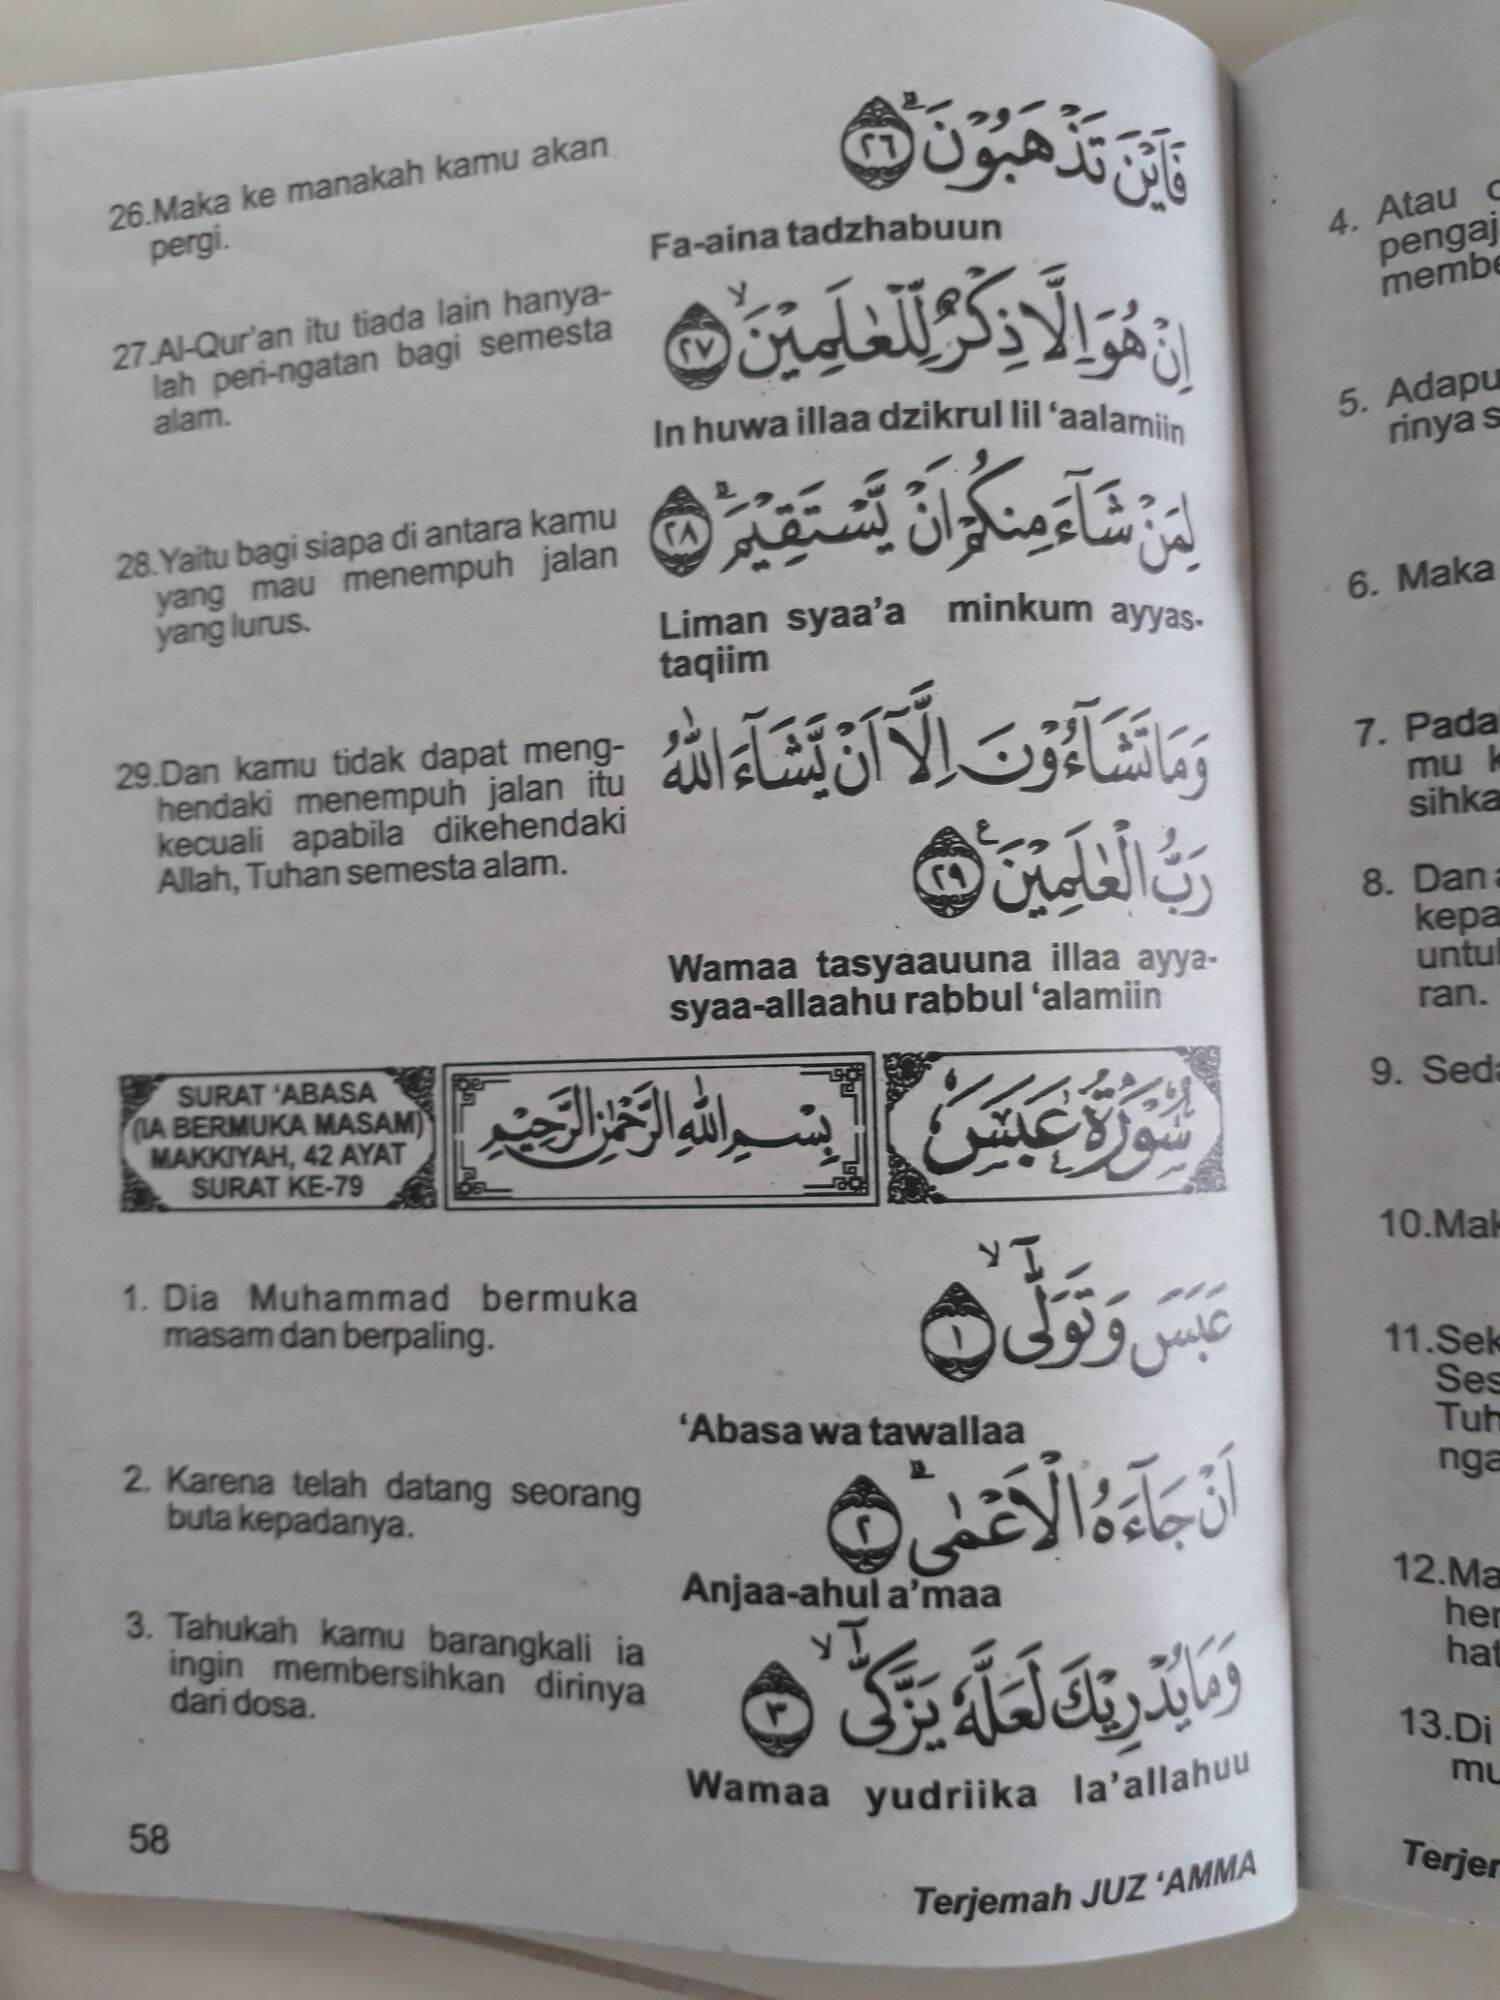 26.Maka ke manakah kamu akan
pergi.
فَاَيْنَ تَذْهَبُوْنَۗ ٢٦
Fa-aina tadzhabuun
27.Al-Qur'an itu tiada lain hanya-
lah peri-ngatan bagi semesta
alam.
اِنْ هُوَ اِلَّا ذِكْرٌ لِّلْعٰلَمِيْنَۙ ٢٧
In huwa illaa dzikrul lil ‘aalamiin
28.Yaitu bagi siapa di antara kamu
yang mau menempuh jalan
yang lurus.
لِمَنْ شَاۤءَ مِنْكُمْ اَنْ يَّسْتَقِيْمَۗ ٢٨
Liman syaa’a minkum ayyas-
taqiim
29.Dan kamu tidak dapat meng-
hendaki menempuh jalan itu
kecuali apabila dikehendaki
Allah, Tuhan semesta alam.
وَمَا تَشَاۤءُوْنَ اِلَّآ اَنْ يَّشَاۤءَ اللّٰهُ
رَبُّ الْعٰلَمِيْنَ ࣖ ٢٩
Wamaa tasyaauuna illaa ayya-
syaa-allaahu rabbul ‘alamiin
SURAT ‘ABASA
(IA BERMUKA MASAM)
MAKKIYAH, 42 AYAT
SURAT KE-79
بِسْمِ اللّٰهِ الرَّحْمٰنِ الرَّحِيْمِ
سُوْرَةُ عَبَسَ
1. Dia Muhammad bermuka
masam dan berpaling.
عَبَسَ وَتَوَلّٰىٓۙ ١
‘Abasa wa tawallaa
2. Karena telah datang seorang
buta kepadanya.
اَنْ جَاۤءَهُ الْاَعْمٰىۗ ٢
Anjaa-ahul a’maa
3. Tahukah kamu barangkali ia
ingin membersihkan dirinya
dari dosa.
وَمَا يُدْرِيْكَ لَعَلَّهٗ يَزَّكّٰىٓۙ ٣
Wamaa yudriika la’allahuu
58
Terjemah JUZ ‘AMMA
4. Atau
5.
6. Maka
7.
mu
8. Dan
ran.
9.
10.
11.
12.
13.Di